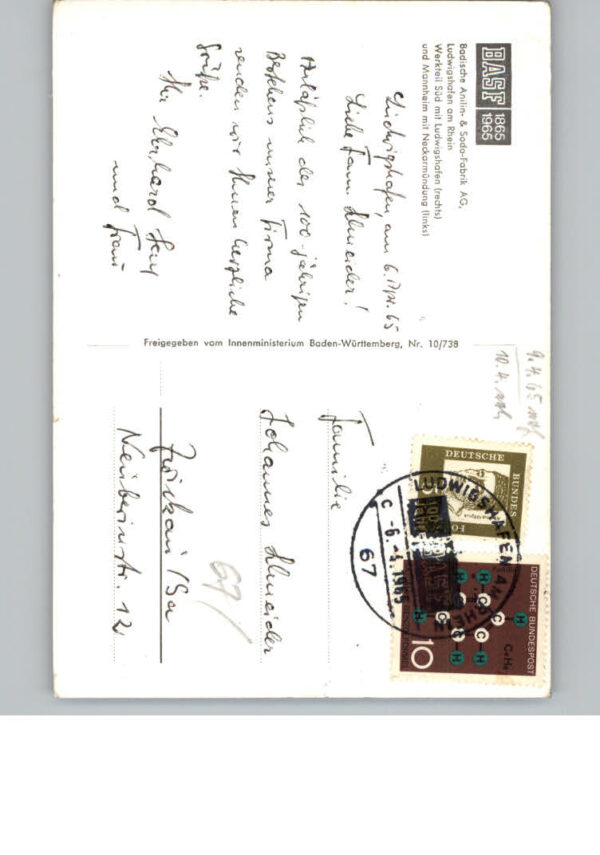 BASF 1865 1965
Badische Anilin- & Soda-Fabrik AG,
Ludwigshafen am Rhein
Werkteil Süd mit Ludwigshafen (rechts)
und Mannheim mit Neckarmündung (links)
Ludwigshafen am 6. Apr. 65
Liebe Fam. Schneider!
Anläßlich des 100-jährigen
Bestehens unserer Firma
senden wir Ihnen herzliche
Grüße.
Ihr Eberhard
und Frau
Freigegeben vom Innenministerium Baden-Württemberg, Nr. 10/738
9.4.65
10.4.
DEUTSCHE BUNDES
DEUTSCHE BUNDESPOST
10
C₆H₆
H C
LUDWIGSHAFEN AM RHEIN
c
-6.-4.1965
67
Familie
Johannes Schneider
67/
Zwickau/Sa
Neuberinstr. 12